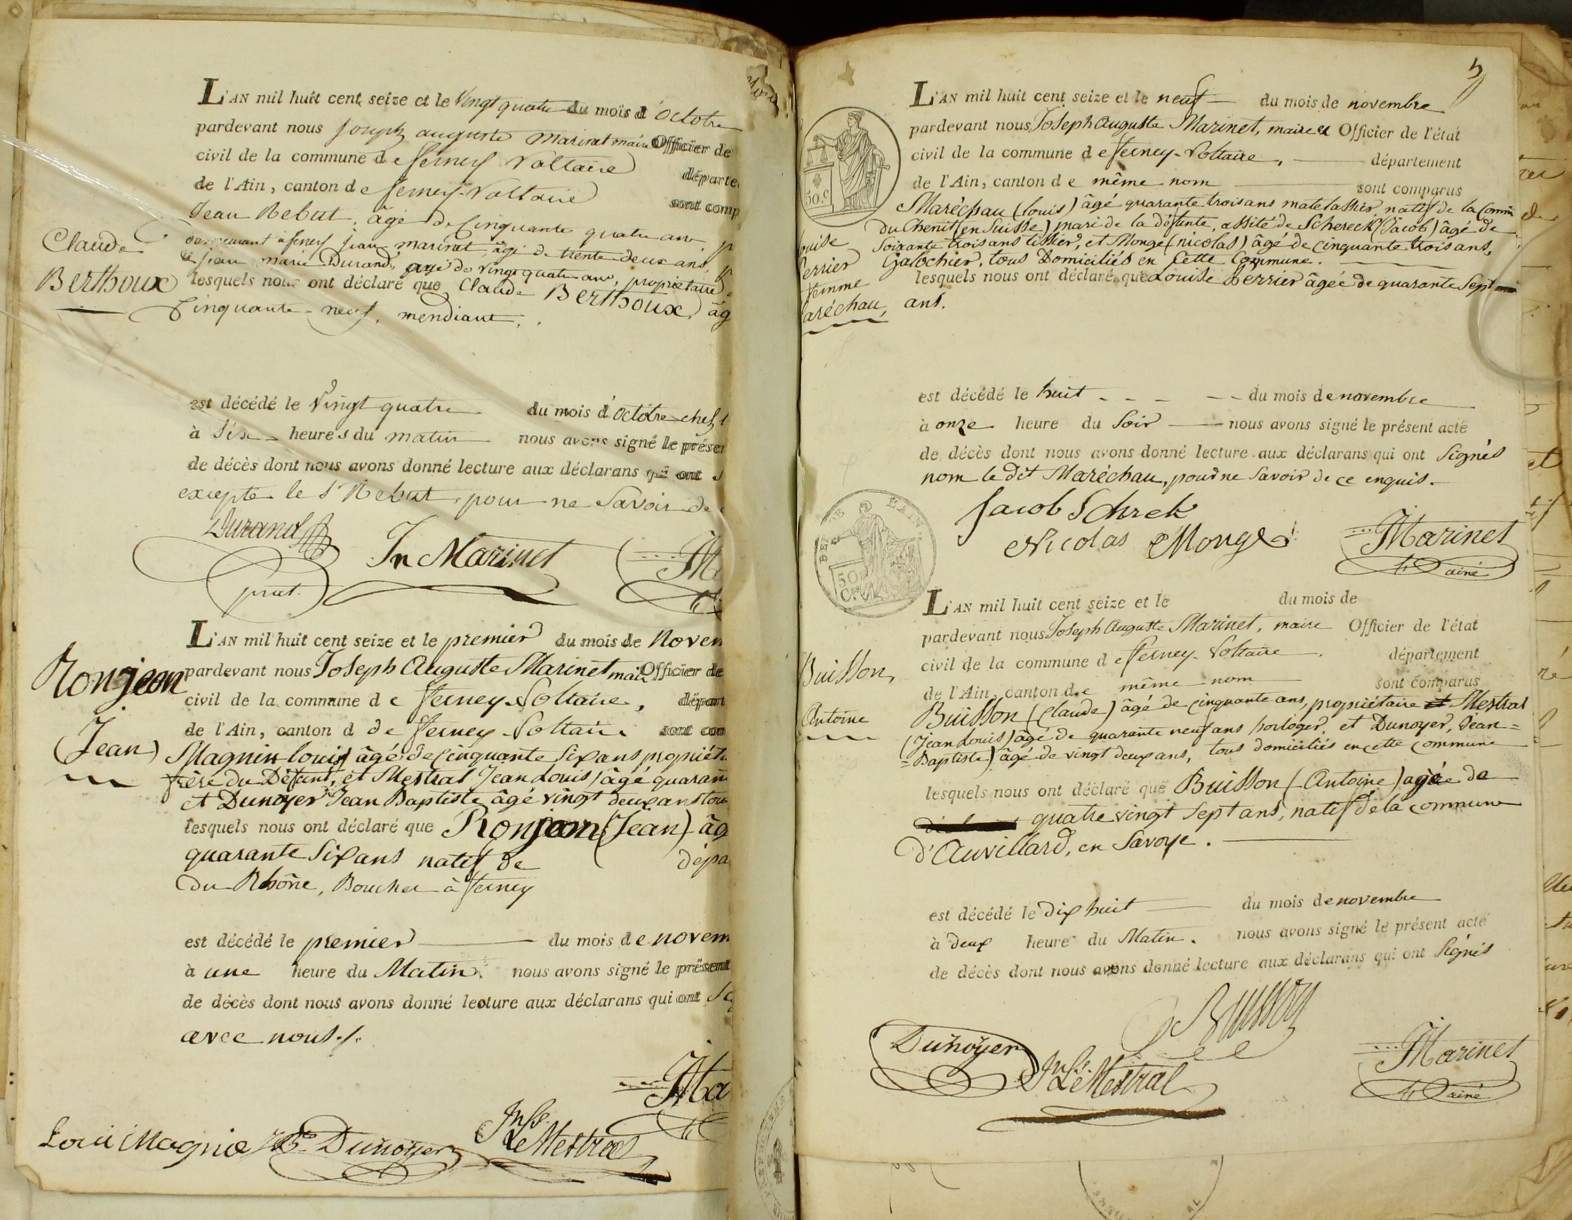 L'AN mil huit cent seize et le Vingt quatre du mois d'octobre
pardevant nous Joseph auguste Marinet maire Officier de
civil de la commune de ferney Voltaire départe
de l'Ain, canton de ferney-Voltaire sont comp
Jean Rebut, âgé de Cinquante quatre ans
à ferney jean marinet âgé de trente deux ans,
& jean marie Durand, âgé de vingt quatre ans, propriétaire
lesquels nous ont déclaré que Claude BERThoux, âg
Cinquante neuf, mendiant,
Claude
BERThoux
est décédé le Vingt quatre du mois d'octobre chez
à Six heures du matin nous avons signé le présen
de décès dont nous avons donné lecture aux déclarans qui ont s
excepté le Sr Rebut, pour ne Savoir de
Durand
Jn Marinet
prêt.
M
L'AN mil huit cent seize et le premier du mois de Noven
pardevant nous Joseph Auguste Marinet mair Officier de
civil de la commune de Ferney-Voltaire, dépar
de l'Ain, canton d de Ferney-Voltaire sont com
Magnin louis âgé de Cinquante Six ans propriét
frère du Défunt, et Mestral Jean Louis âgé quaran
et Dunoyer Jean Baptiste âgé vingt deux ans tou
lesquels nous ont déclaré que Ronjean (Jean) âg
quarante Six ans natif de dépa
du Rhône, Boucher à ferney
Ronjean
(Jean)
est décédé le premier du mois de novem
à une heure du Matin. nous avons signé le présent
de décès dont nous avons donné lecture aux déclarans qui ont
avec nous./.
Ma
Louis Magnin Dunoyer
Jn Ls
LeMestral
5
L'AN mil huit cent seize et le neuf du mois de novembre
pardevant nous Joseph Auguste Marinet, maire & Officier de l'état
civil de la commune de ferney-Voltaire, département
de l'Ain, canton de même nom sont comparus
Maréchau (louis) âgé quarante trois ans matelassier natif de la Comm
du Chenit (en Suisse) mari de la défunte, assité de Schereck (Jacob) âgé de
Soixante trois ans tissier, et Monge (nicolas) âgé de cinquante trois ans,
Galochier, tous Domiciliés en Cette Commune.
lesquels nous ont déclaré que Louise Perrier âgée de quarante Sept
ans.
ouise
Perrier
femme
aréchau,
50 C
est décédé le huit du mois de novembre
à onze heure du Soir nous avons signé le présent acte
de décès dont nous avons donné lecture aux déclarans qui ont Signés
nom le dit Maréchau, pour ne Savoir de ce enquis.
Jacob Schrek
Nicolas Monge
Marinet
ainé
L'AN mil huit cent seize et le du mois de
pardevant nous Joseph Auguste Marinet, maire Officier de l'état
civil de la commune de ferney-Voltaire département
de l'Ain, canton de même nom sont comparus
Buisson (Claude) âgé de cinquante ans, propriétaire et Mestral
(Jean Louis) âgé de quarante neuf ans horloger, et Dunoyer, Jean=
=Baptiste) âgé de vingt deux ans, tous domiciliés en cette commune
lesquels nous ont déclaré que Buisson (Antoine) agé de
quatre vingt Sept ans, natif de la commune
d'Auvillard, en Savoye.
Buisson,
Antoine
est décédé le dix huit du mois de novembre
à deux heure du Matin. nous avons signé le présent acte
de décès dont nous avons donné lecture aux déclarans qui ont Signés
C Buisson
Dunoyer
Jn Ls
LeMestral
Marinet
ainé